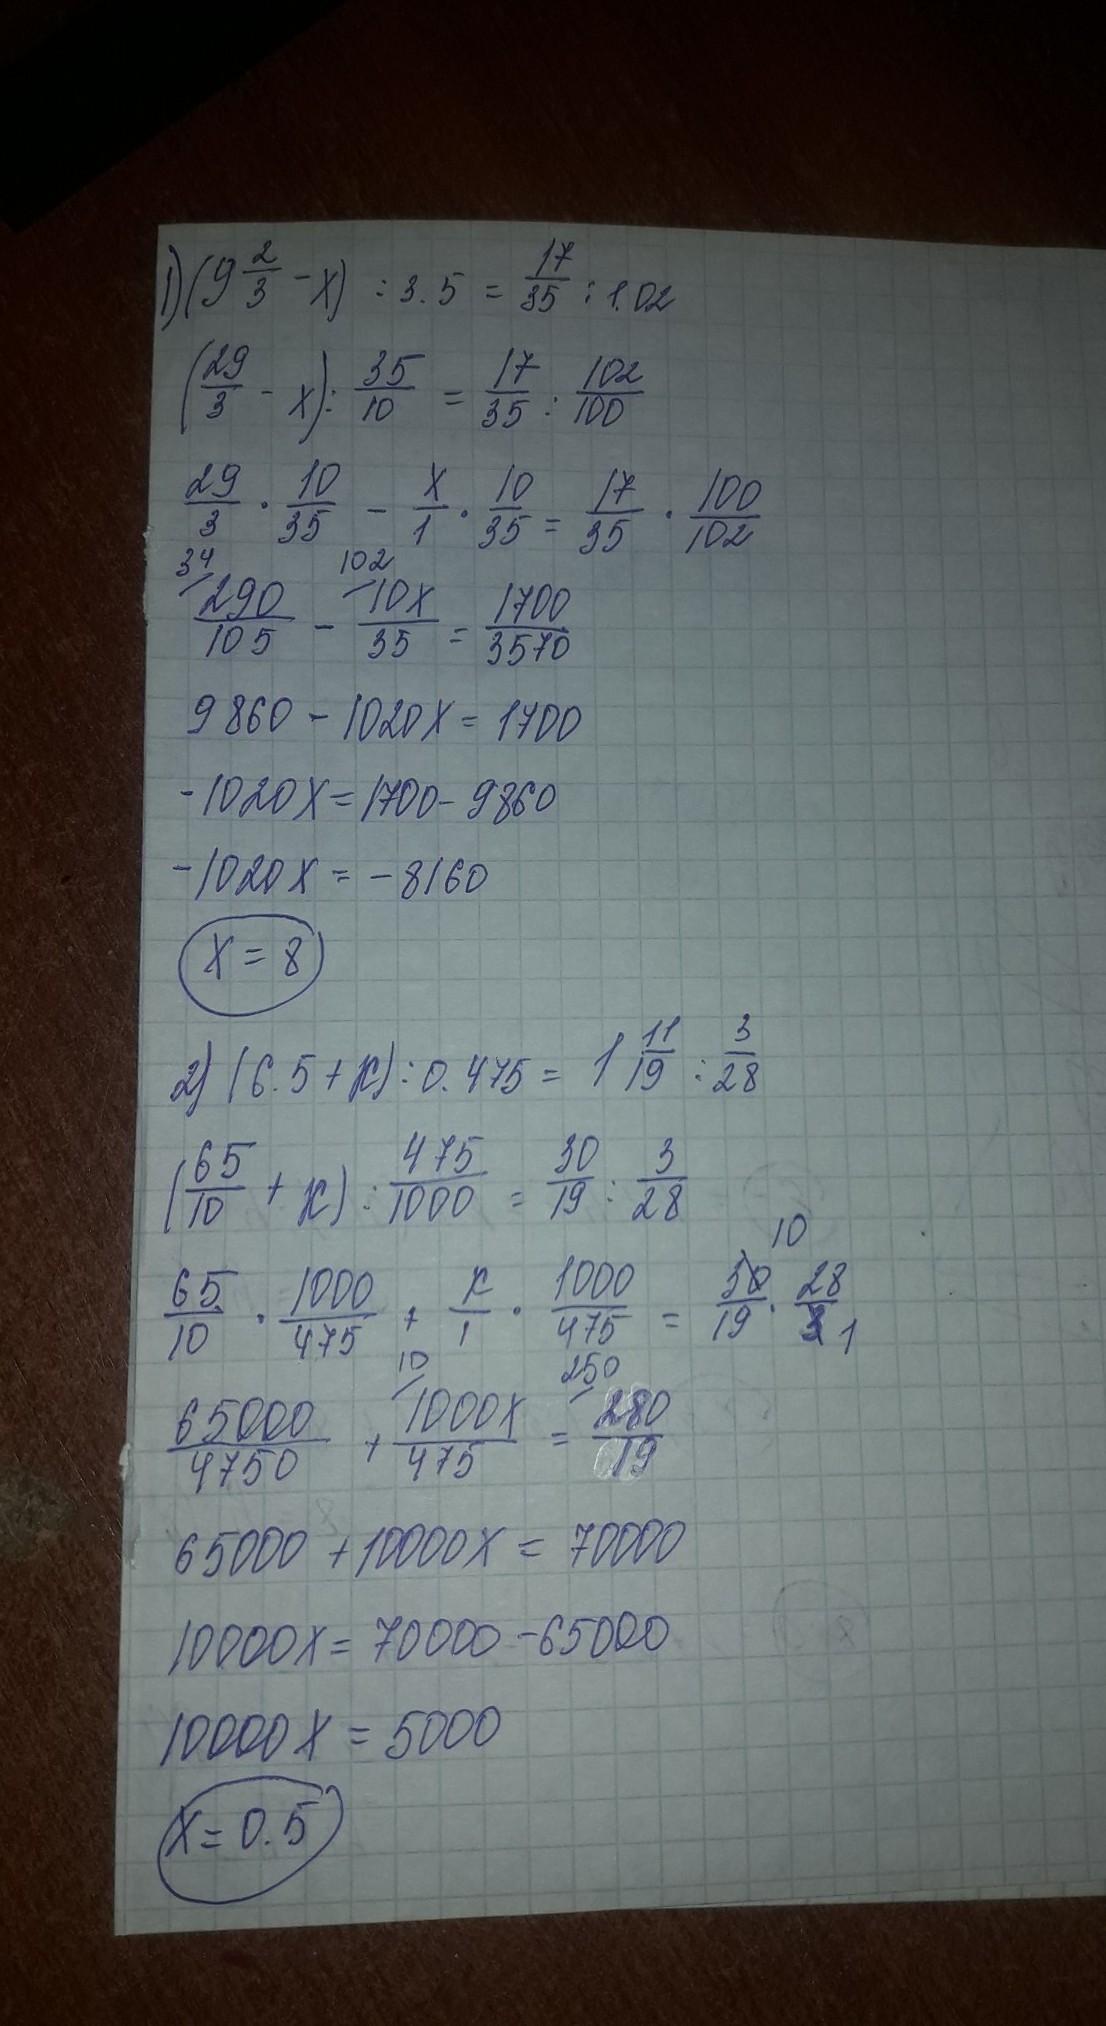 1) (9 2/3 - x) : 3.5 = 17/35 : 1.02
(29/3 - x) : 35/10 = 17/35 : 102/100
29/3 · 10/35 - x/1 · 10/35 = 17/35 · 100/102
34 102
290/105 - 10x/35 = 1700/3570
9860 - 1020x = 1700
-1020x = 1700 - 9860
-1020x = -8160
x = 8
2) (6.5 + x) : 0.475 = 1 11/19 : 3/28
(65/10 + x) : 475/1000 = 30/19 : 3/28
10
65/10 · 1000/475 + x/1 · 1000/475 = 30/19 · 28/3 1
10 250
65000/4750 + 1000x/475 = 280/19
65000 + 10000x = 70000
10000x = 70000 - 65000
10000x = 5000
x = 0.5